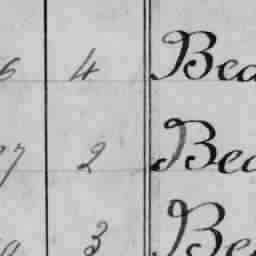 6 4 Bea
27 2 Bea
3 Be